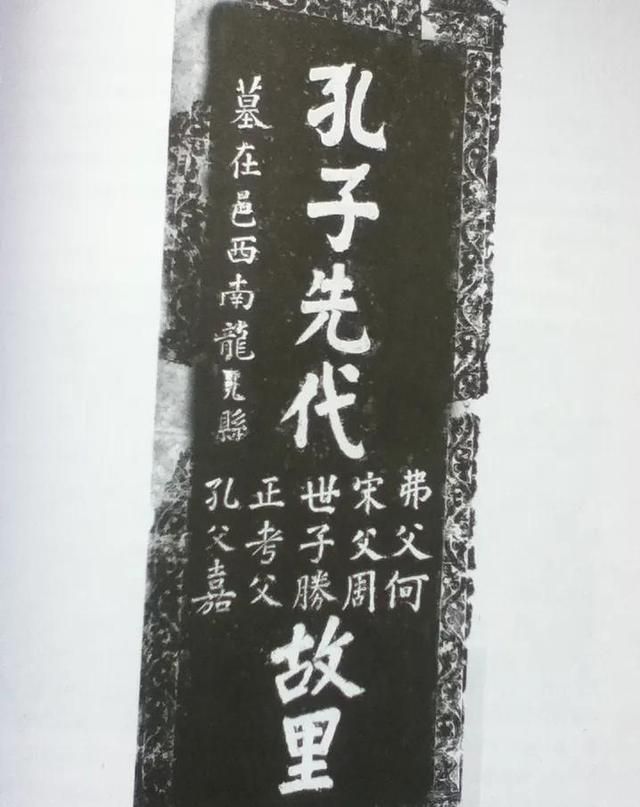 孔子先代
弗父何
宋父周
世子勝
正考父
孔父嘉
故里
墓在邑西南龍縣